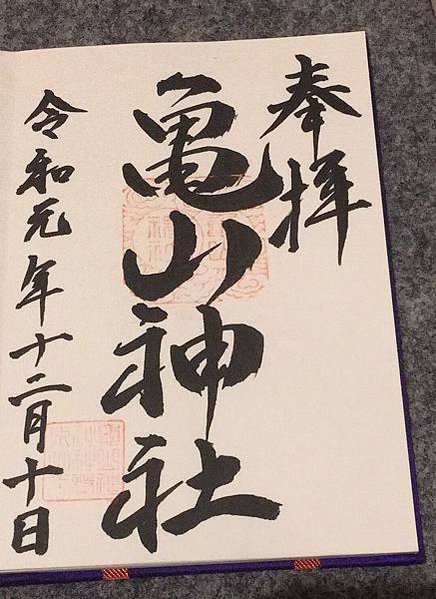 奉拝
亀山神社
令和元年十二月十日